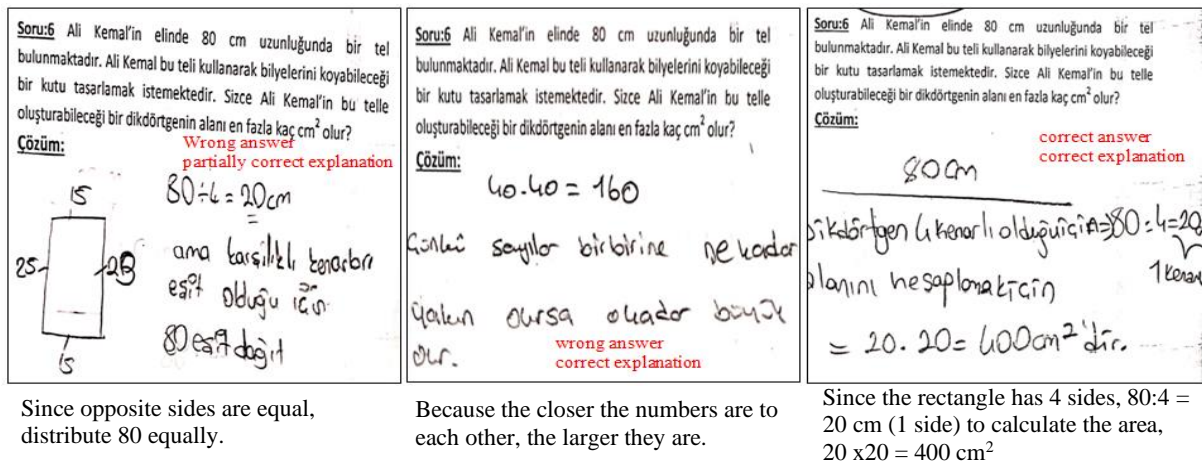 Soru:6 Ali Kemal'in elinde 80 cm uzunluğunda bir tel
bulunmaktadır. Ali Kemal bu teli kullanarak bilyelerini koyabileceği
bir kutu tasarlamak istemektedir. Sizce Ali Kemal'in bu telle
oluşturabileceği bir dikdörtgenin alanı en fazla kaç cm² olur?
Çözüm:
Wrong answer
partially correct explanation
80÷4=20cm
15
25
15
ama karşılıklı kenarları
eşit olduğu için
80 eşit dağıt
Since opposite sides are equal,
distribute 80 equally.
Soru:6 Ali Kemal'in elinde 80 cm uzunluğunda bir tel
bulunmaktadır. Ali Kemal bu teli kullanarak bilyelerini koyabileceği
bir kutu tasarlamak istemektedir. Sizce Ali Kemal'in bu telle
oluşturabileceği bir dikdörtgenin alanı en fazla kaç cm² olur?
Çözüm:
40.40=160
Çünkü sayılar birbirine ne kadar
yakın olursa okadar büyük
olur.
wrong answer
correct explanation
Because the closer the numbers are to
each other, the larger they are.
Soru:6 Ali Kemal'in elinde 80 cm uzunluğunda bir tel
bulunmaktadır. Ali Kemal bu teli kullanarak bilyelerini koyabileceği
bir kutu tasarlamak istemektedir. Sizce Ali Kemal'in bu telle
oluşturabileceği bir dikdörtgenin alanı en fazla kaç cm² olur?
Çözüm:
correct answer
correct explanation
80cm
Dikdörtgen 4 kenarlı olduğu için⇒80:4=20
1 kenarı
alanını hesaplamak için
=20.20=400cm²'dir.
Since the rectangle has 4 sides, 80:4 =
20 cm (1 side) to calculate the area,
20 x20 = 400 cm²